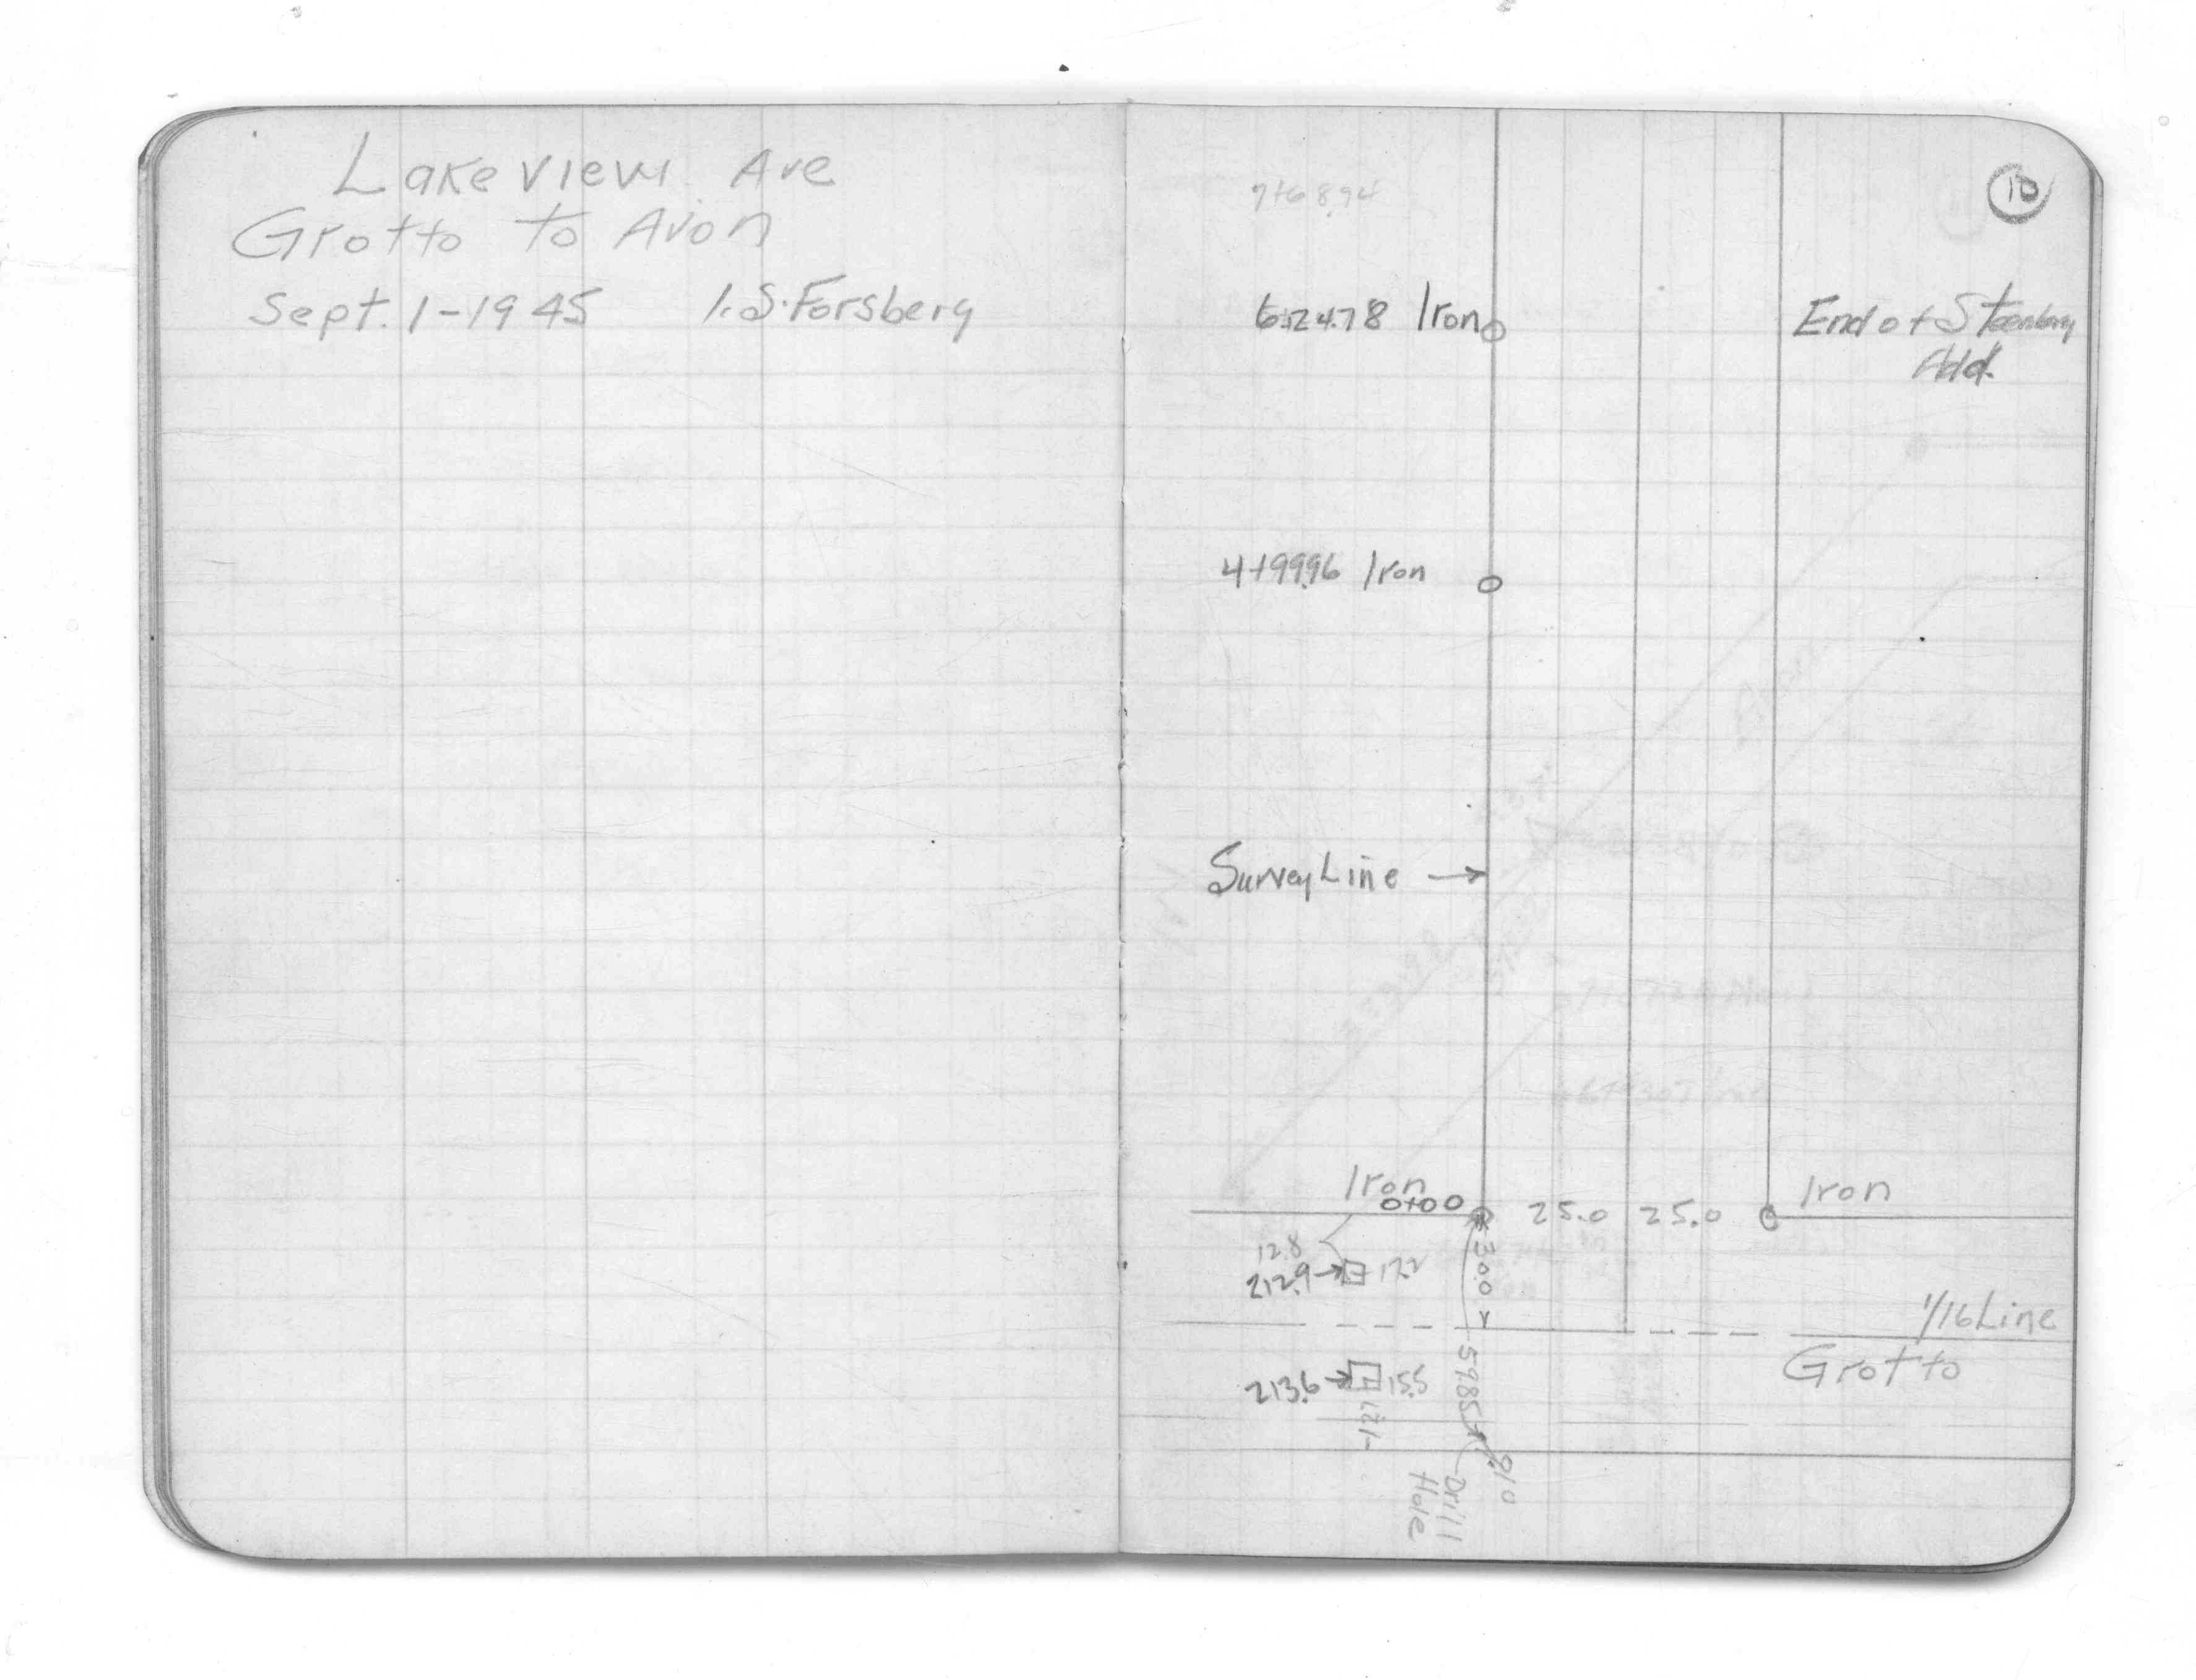 Lakeview Ave
Grotto to Avon
Sept. 1-1945 I.S. Forsberg
10
7+68.94
6+24.78 Iron
End of
Add.
4+99.96 Iron
Survey Line →
Iron
0+00
25.0 25.0
Iron
12.8
212.9→ 17.2
30.0
1/16 Line
Grotto
213.6→ 15.5
59.85
Drill
Hole